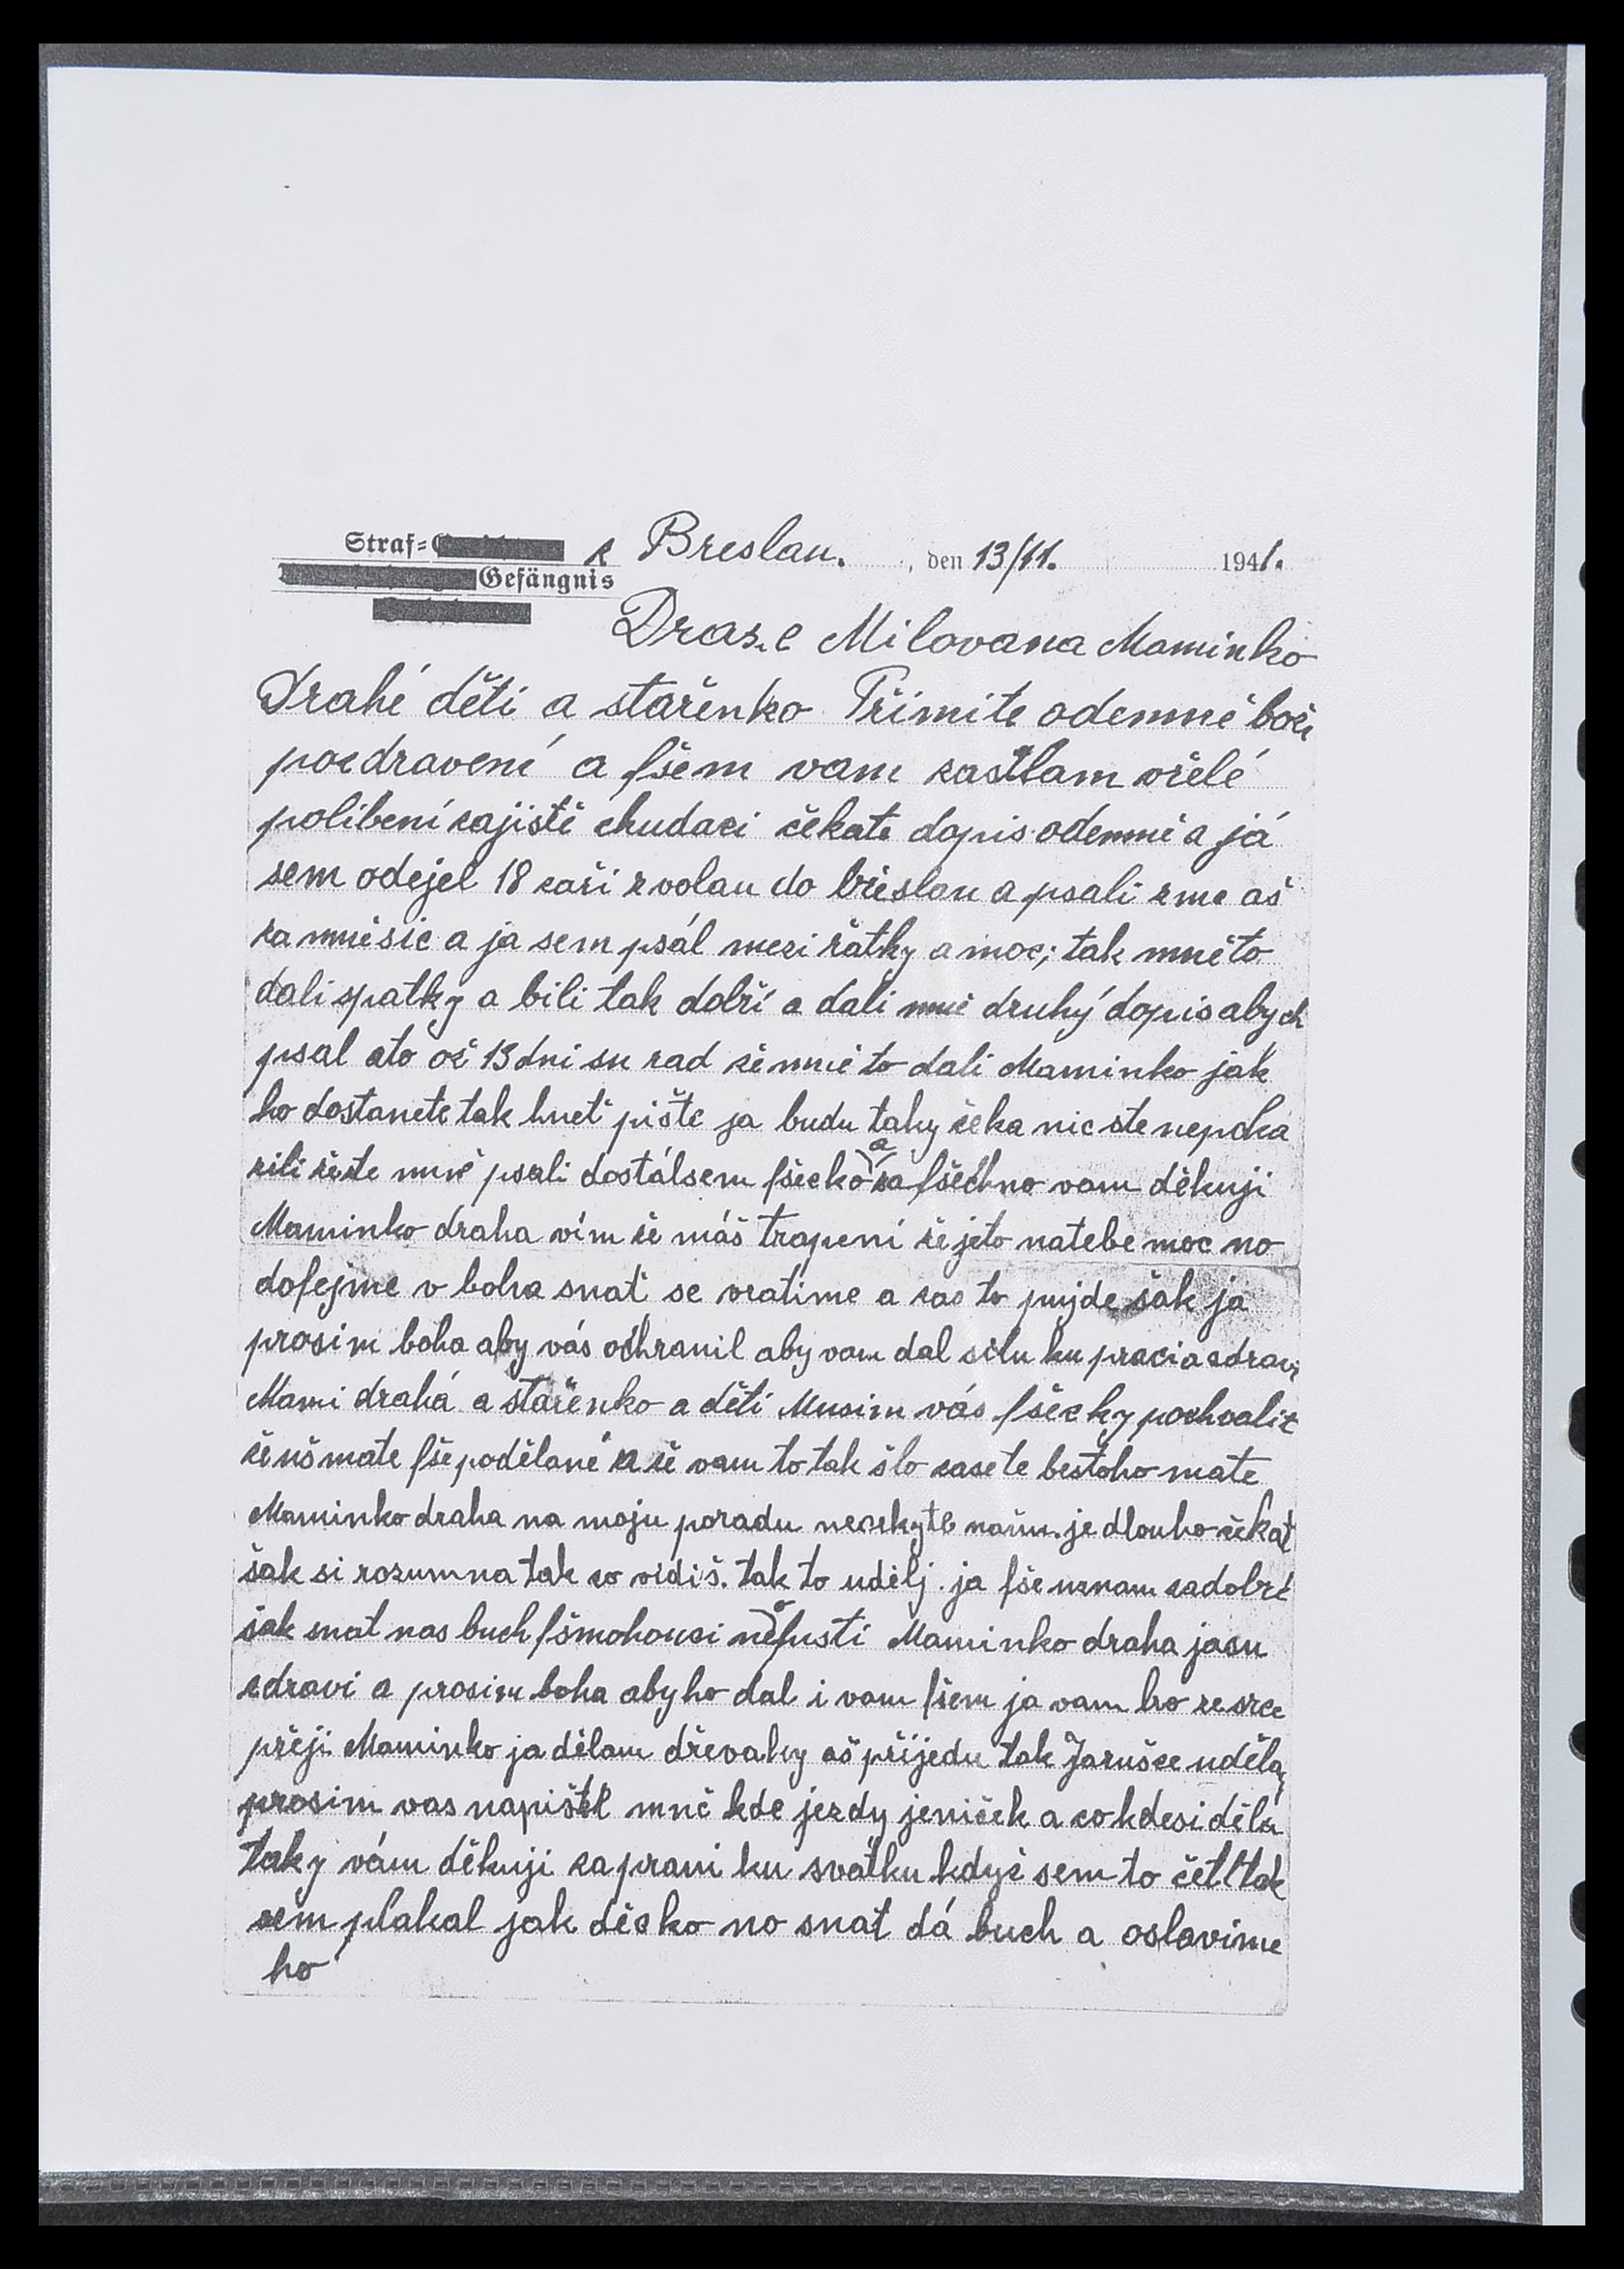 Straf=
Gefängnis
z Breslau. , den 13/11. 1941.
Draze Milovana Maminko
Drahé děti a stařenko Přimite odemně boži
pozdravení a fšem vam zasílam vřelé
políbení zajistě chudaci čekate dopis odemně a já
sem odejel 18 zaři z volau do břeslau a psali zme aš
za mněsic a ja sem psál mezi řátky a moc; tak mně to
dali spatky a bili tak dobří a dali mně druhý dopis abych
psal ato oš 13 dni su rad že mně to dali Maminko jak
ho dostanete tak hneť pište ja budu taky čeka nic ste nepoka
zili žeste mně psali dostálsem fšecko a za fšechno vam děkuji
Maminko draha vím že máš trapení že jeto natebe moc no
dofejme v boha snať se vratime a zas to pujde šak ja
prosim boha aby vás ochranil aby vam dal silu ku praci a zdravi
Mami drahá a stařenko a děti Musim vás fšecky pochvalit
že uš mate fše podělané a že vam to tak šlo zase te bestoho mate
Maminko draha na moju poradu necekyte našu. je dlouho čekat
šak si rozumna tak co vidiš. tak to udělj. ja fše uznam zadobré
šak snat nas buch fšmohouci neopusti Maminko draha jasu
zdravi a prosim boha abyho dal i vam fšem ja vam ho ze srce
přeji Maminko ja dělam dřevaky aš přijedu tak Jarušce uděla
prosim vas napiště mně kde jezdy jeniček a co kdesi děla
taky vám děkuji zaprani ku svátku když sem to četl tak
sem plakal jak děcko no snať dá buch a oslavime
ho